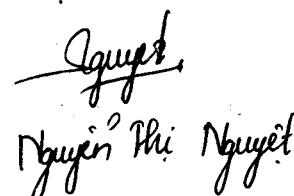 Nguyệt
Nguyễn Thị Nguyệt